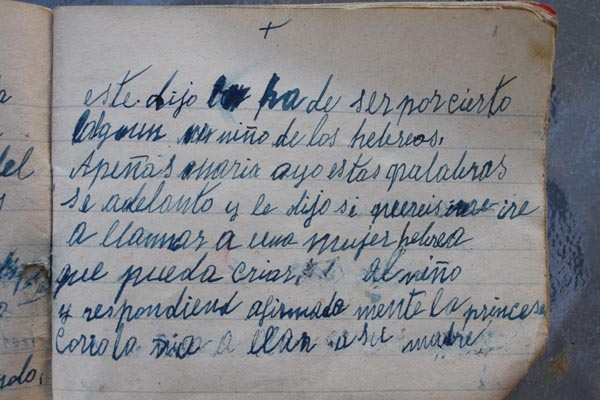 +
este dijo ha de ser por cierto
algun niño de los hebreos,
Apeñas maria oyo estas palabras
se adelanto y le dijo si quereis ire
a llamar a una mujer hebrea
que pueda criar al niño
y respondiend afirmada mente la princesa
Corrola a llan a su madre
del
ndo,